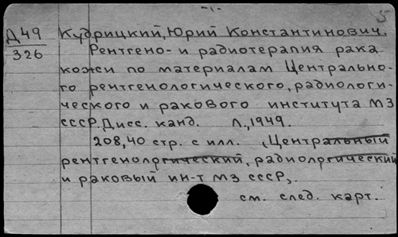 -1-
5
Д49
326
Кудрицкий, Юрий Константинович.
Рентгено- и радиотерапия рака
кожи по материалам Центрально-
го рентгенологического, радиологи-
ческого и ракового института МЗ
СССР. Дисс. канд. Л., 1949.
208,40 стр. с илл. (Центральный
рентгенологический, радиологический
и раковый ин-т МЗ СССР).
см. след. карт.